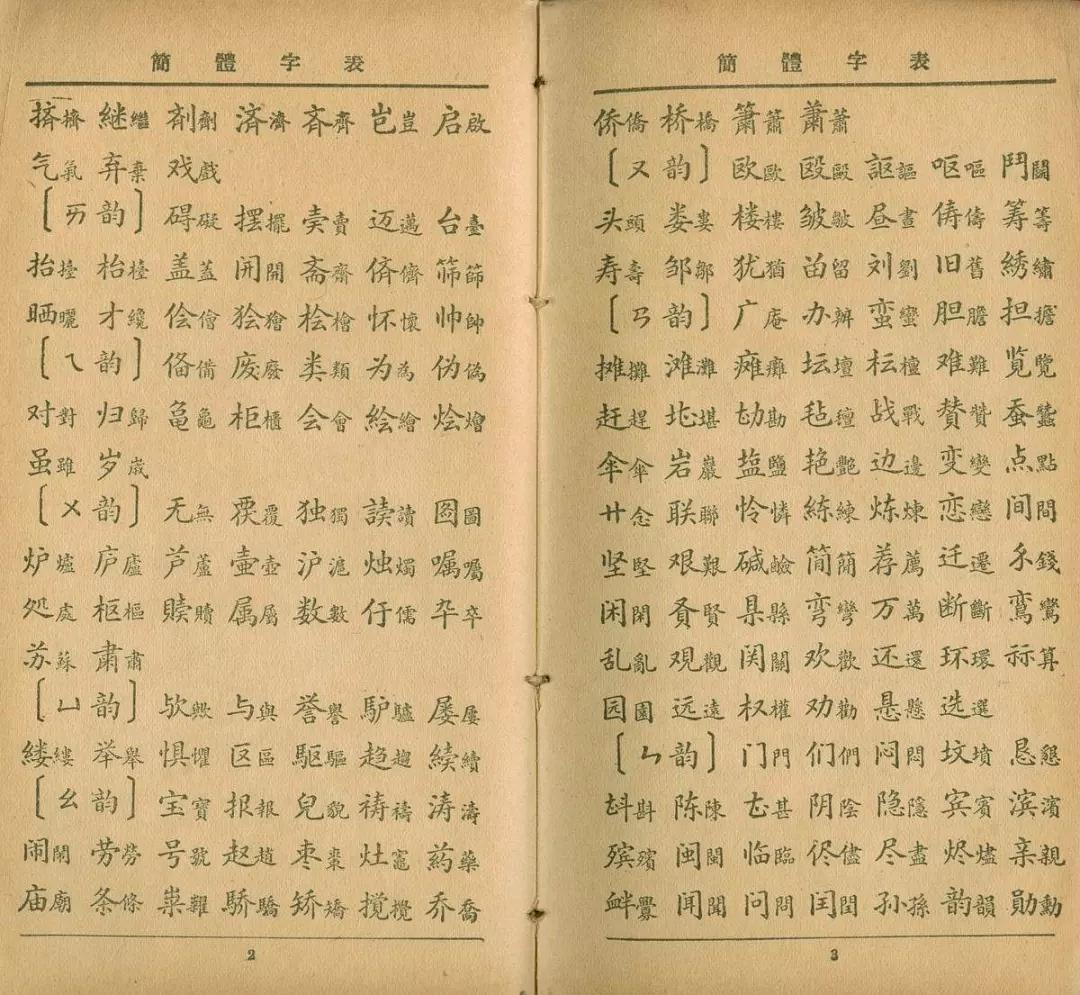 簡體字表
挤擠 継繼 剤劑 済濟 斉齊 岂豈 启啟
气氣 弃棄 戏戲
〔ㄞ韵〕 碍礙 摆擺 卖賣 迈邁 台臺
抬擡 枱檯 盖蓋 开開 斋齋 侪儕 筛篩
晒曬 才纔 侩儈 狯獪 桧檜 怀懷 帅帥
〔ㄟ韵〕 俻備 废廢 类類 为為 伪偽
对對 归歸 亀龜 柜櫃 会會 絵繪 烩燴
虽雖 岁歲
〔ㄨ韵〕 无無 覆 独獨 読讀 图圖
炉爐 庐廬 芦蘆 壷壺 沪滬 烛燭 嘱囑
処處 枢樞 赎贖 属屬 数數 伩儒 卆卒
苏蘇 肃肅
〔ㄩ韵〕 欤歟 与與 誉譽 馿驢 屡屢
缕縷 举舉 惧懼 区區 駆驅 趋趨 続續
〔ㄠ韵〕 宝寶 报報 皃貌 祷禱 涛濤
闹鬧 劳勞 号號 赵趙 枣棗 灶竈 药藥
庙廟 条條 粜糶 骄驕 矫矯 搅攪 乔喬
2
簡體字表
侨僑 桥橋 箫簫 萧蕭
〔ㄡ韵〕 欧歐 殴毆 讴謳 呕嘔 鬥鬭
头頭 娄婁 楼樓 皱皺 昼晝 俦儔 筹籌
寿壽 邹鄒 犹猶 畄留 刘劉 旧舊 绣繡
〔ㄢ韵〕 广庵 办辦 蛮蠻 胆膽 担擔
摊攤 滩灘 瘫癱 坛壇 枟檀 难難 览覽
赶趕 堪 勘 毡氈 战戰 賛贊 蚕蠶
伞傘 岩巖 塩鹽 艳艷 边邊 变變 点點
廿念 联聯 怜憐 練 炼煉 恋戀 间間
坚堅 艰艱 碱鹼 简簡 荐薦 迁遷 錢
闲閑 贤賢 県縣 弯彎 万萬 断斷 鸾鸞
乱亂 观觀 関關 欢歡 还還 环環 祘算
园園 远遠 权權 劝勸 悬懸 选選
〔ㄣ韵〕 门門 们們 闷悶 坟墳 恳懇
斟 陈陳 甚 阴陰 隐隱 宾賓 滨濱
殡殯 闽閩 临臨 侭儘 尽盡 烬燼 亲親
衅釁 闻聞 问問 闰閏 孙孫 韵韻 勋勳
3